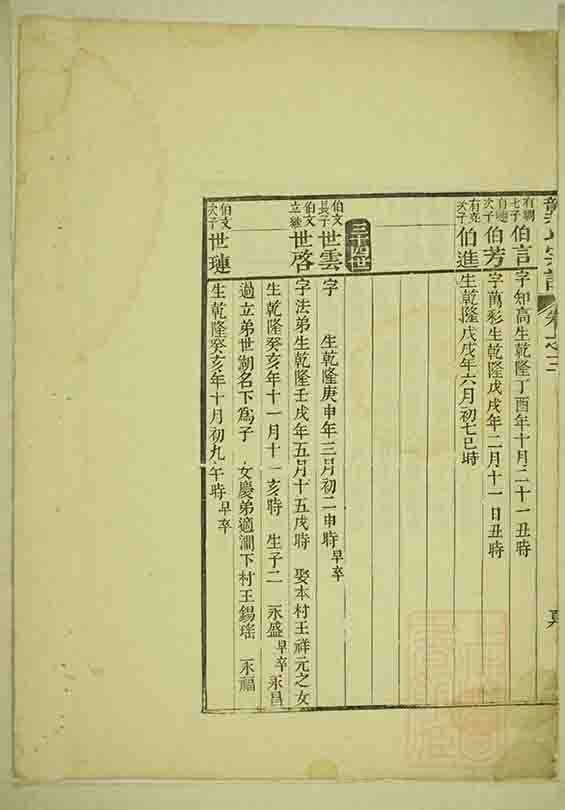 宗譜 卷之三
有鵰七子 伯言 字知高生乾隆丁酉年十月二十一丑時
次子 伯芳 字萬彩生乾隆戊戌年二月十一日丑時
次子 伯進 生乾隆戊戌年六月初七巳時
三十四世
伯文長子 世雲 字 生乾隆庚申年三月初二申時 早卒
伯文立繼 世啓 字法弟生乾隆壬戌年五月十五戌時 娶本村王祥元之女
生乾隆癸亥年十一月十一亥時 生子二 永盛 早卒 永昌
過立弟世瑚名下爲子 女慶弟適澗下村王錫瑤 永福
伯文次子 世璉 生乾隆癸亥年十月初九午時 早卒